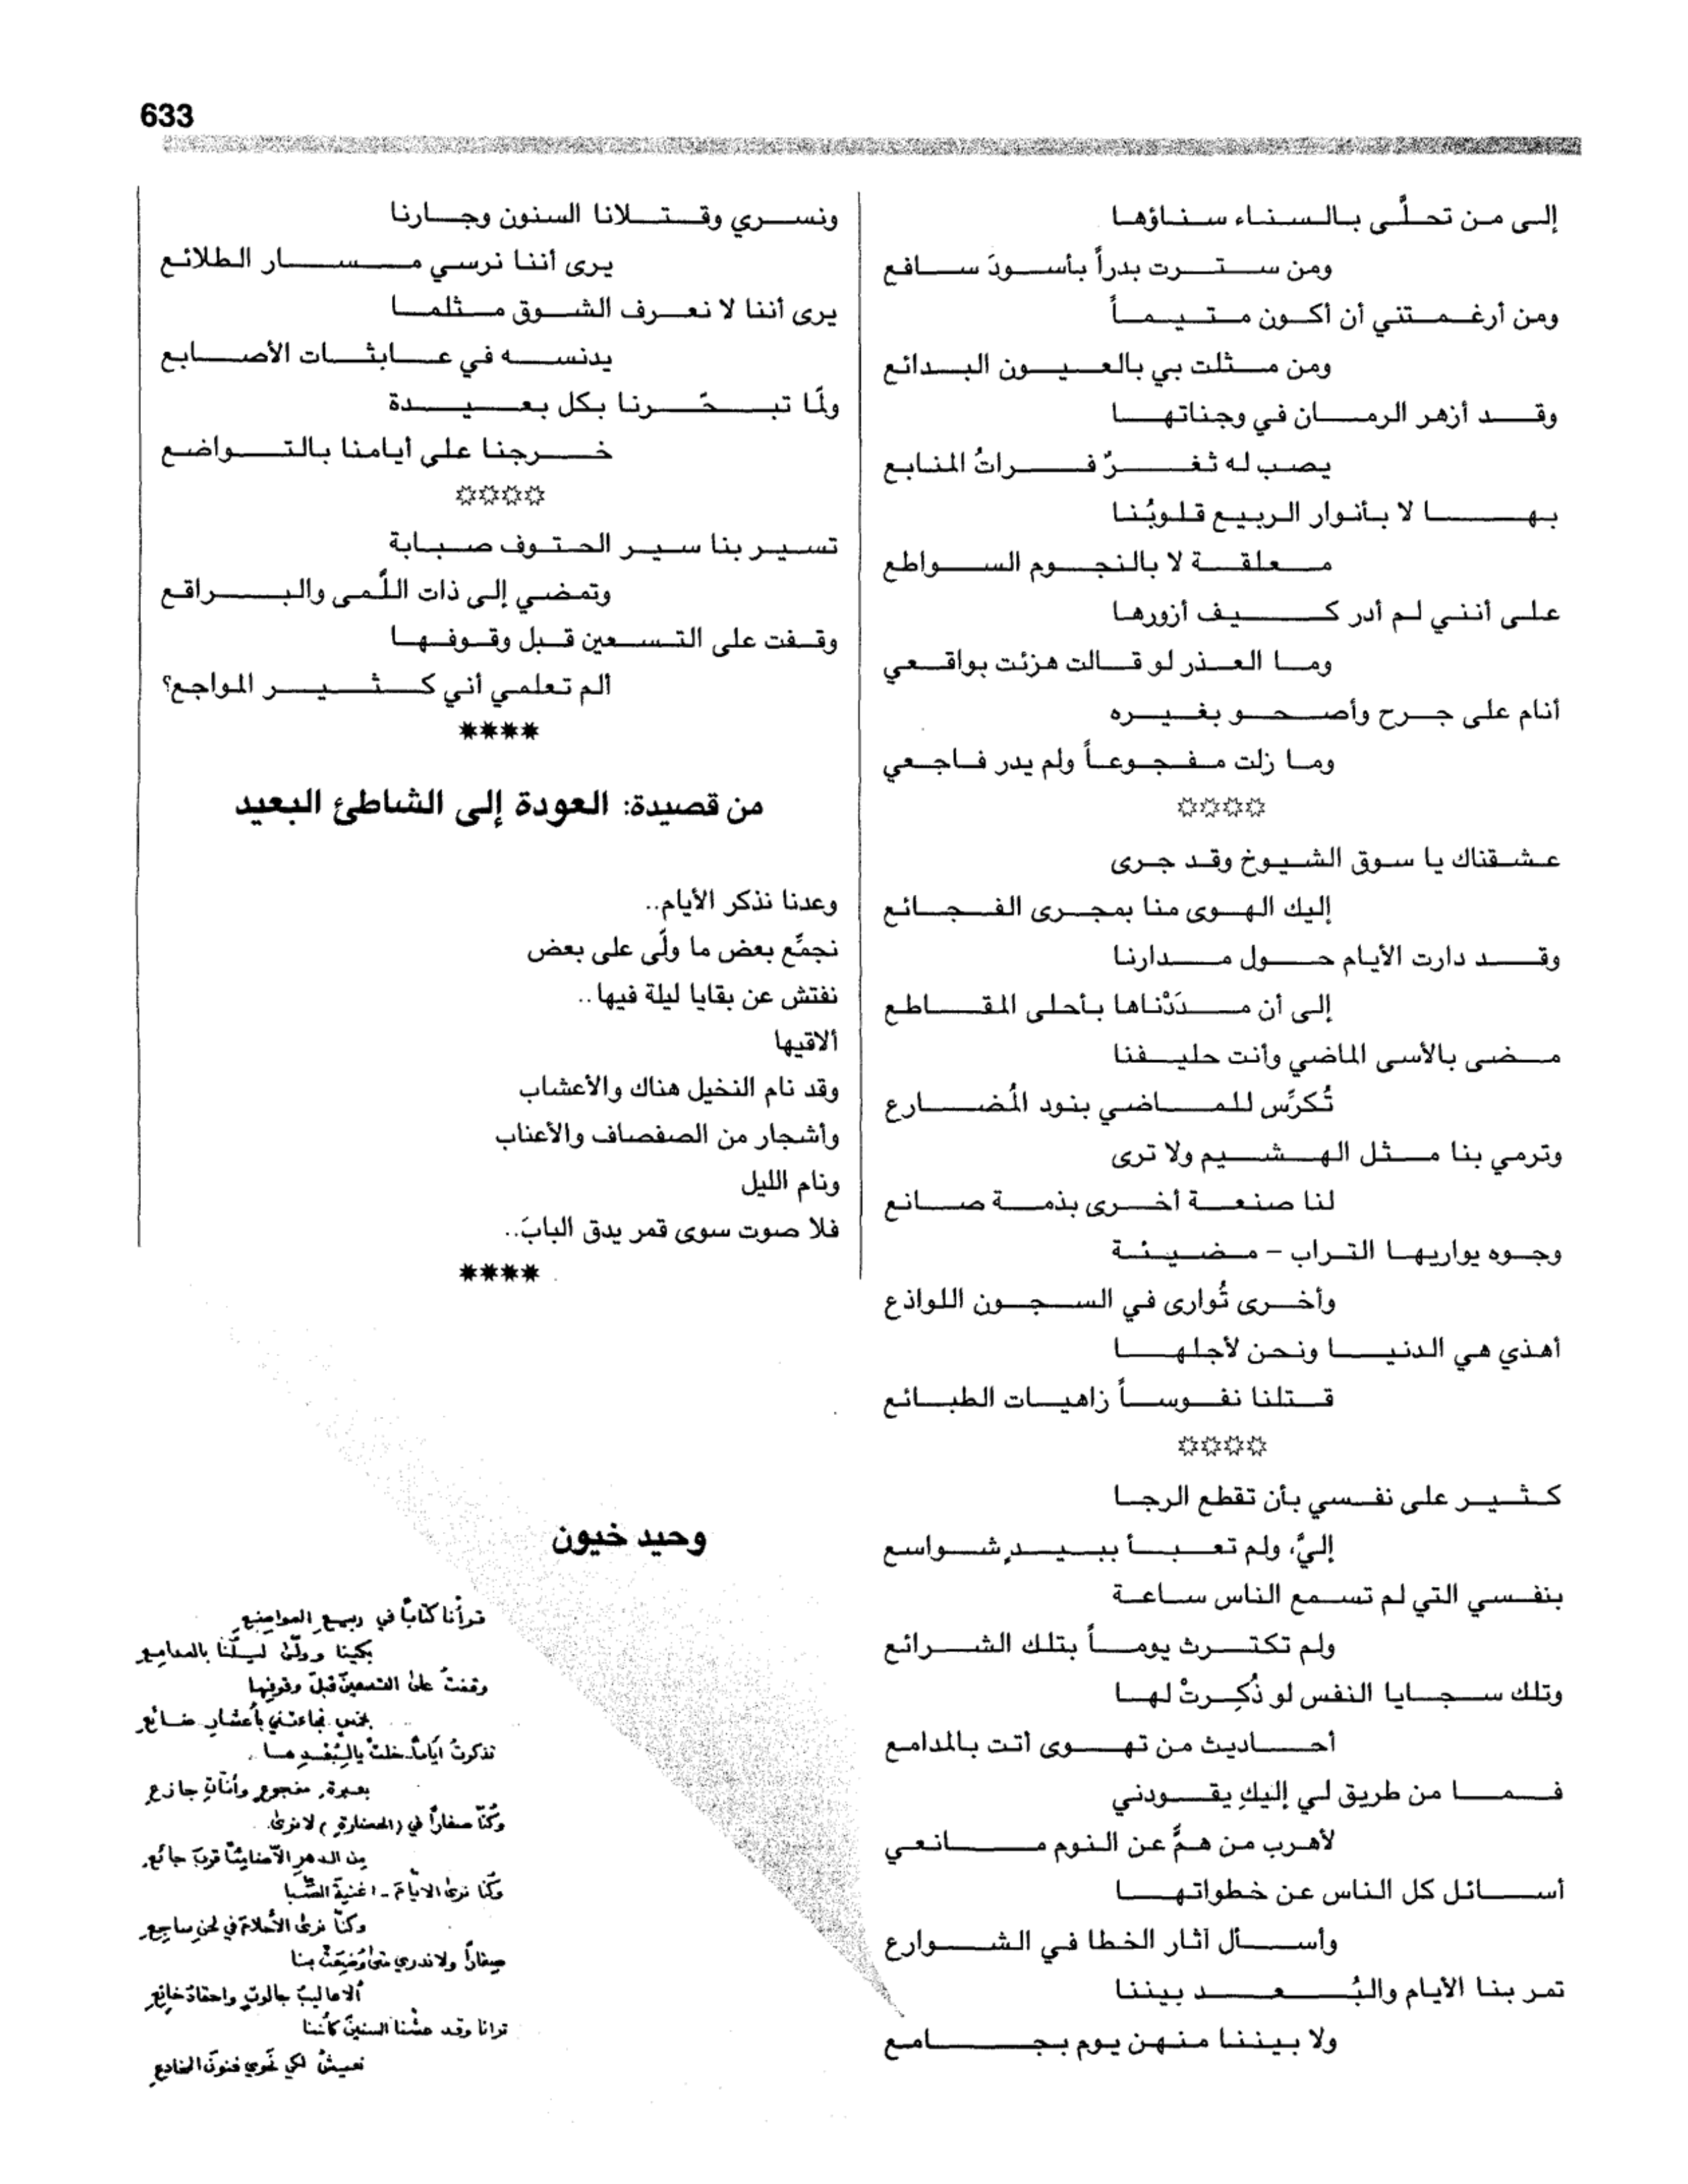 633
إلى من تحلَّى بالسناء سناؤها
ومن سترت بدراً بأسودَ سافع
ومن أرغمتني أن أكون متيماً
ومن مثلت بي بالعيون البدائع
وقد أزهر الرمان في وجناتها
يصب له ثغرٌ فراتُ المنابع
بها لا بأنوار الربيع قلوبُنا
معلقة لا بالنجوم السواطع
على أنني لم أدر كيف أزورها
وما العذر لو قالت هزئت بواقعي
أنام على جرح وأصحو بغيره
وما زلت مفجوعاً ولم يدر فاجعي
☼☼☼☼
عشقناك يا سوق الشيوخ وقد جرى
إليك الهوى منا بمجرى الفجائع
وقد دارت الأيام حول مدارنا
إلى أن مددْناها بأحلى المقاطع
مضى بالأسى الماضي وأنت حليفنا
تُكرِّس للماضي بنود المُضارع
وترمي بنا مثل الهشيم ولا ترى
لنا صنعة أخرى بذمة صانع
وجوه يواريها التراب - مضيئة
وأخرى تُوارى في السجون اللواذع
أهذي هي الدنيا ونحن لأجلها
قتلنا نفوساً زاهيات الطبائع
☼☼☼☼
كثير على نفسي بأن تقطع الرجا
إليَّ، ولم تعبأ ببيدٍ شواسع
بنفسي التي لم تسمع الناس ساعة
ولم تكترث يوماً بتلك الشرائع
وتلك سجايا النفس لو ذُكِرتْ لها
أحاديث من تهوى أتت بالمدامع
فما من طريق لي إليكِ يقودني
لأهرب من همٍّ عن النوم مانعي
أسائل كل الناس عن خطواتها
وأسأل آثار الخطا في الشوارع
تمر بنا الأيام والبُعد بيننا
ولا بيننا منهن يوم بجامع
ونسري وقتلانا السنون وجارنا
يرى أننا نرسي مسار الطلائع
يرى أننا لا نعرف الشوق مثلما
يدنسه في عابثات الأصابع
ولمّا تبحّرنا بكل بعيدة
خرجنا على أيامنا بالتواضع
☼☼☼☼
تسير بنا سير الحتوف صبابة
وتمضي إلى ذات اللَّمى والبراقع
وقفت على التسعين قبل وقوفها
ألم تعلمي أني كثير المواجع؟
****
من قصيدة: العودة إلى الشاطئ البعيد
وعدنا نذكر الأيام..
نجمِّع بعض ما ولَّى على بعض
نفتش عن بقايا ليلة فيها..
ألاقيها
وقد نام النخيل هناك والأعشاب
وأشجار من الصفصاف والأعناب
ونام الليل
فلا صوت سوى قمر يدق البابَ..
****
وحيد خيون
قرأنا كتاباً في ربيع المواضع
بكينا وولّى ليلُنا بالمدامع
وقفتُ على التسعينَ قبلَ وقوفِها
بخمسٍ فجاءتني بأعشارِ ضائع
تذكرتُ أياماً خلتْ يالبُعدِها
بعبرةِ مفجوعٍ وأنّاتِ جازعِ
وكُنّا صغاراً في (الحضارةِ) لا نرى
من الدهرِ إلاّ ضاميئاً قربَ جائع
وكُنا نرى الأيامَ - أغنيةَ الصِّبا
وكنّا نرى الأحلامَ في لحنِ ساجعِ
صغاراً ولا ندري متى وُضِعَتْ بنا
ألاعاليبُ جالوتٍ وأحقادُ خانعِ
ترانا وقد عشنا السنينَ كأننا
نعيشُ لكي نحوي فنونَ المخادعِ